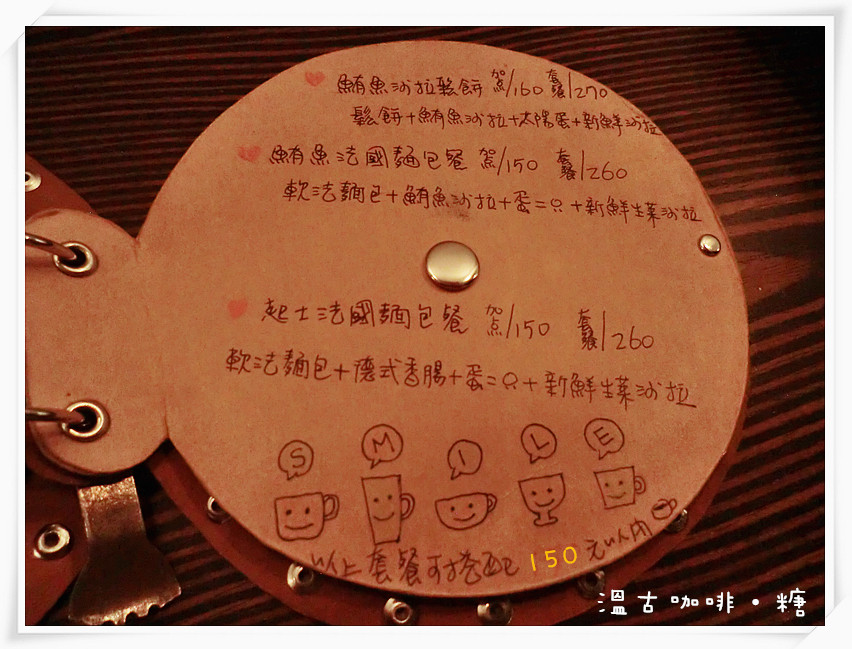 鮪魚沙拉鬆餅 加點/160 套餐/270
鬆餅+鮪魚沙拉+太陽蛋+新鮮沙拉
鮪魚法國麵包餐 加點/150 套餐/260
軟法麵包+鮪魚沙拉+蛋二只+新鮮生菜沙拉
起士法國麵包餐 加点/150 套餐/260
軟法麵包+德式香腸+蛋二只+新鮮生菜沙拉
SMILE
以上套餐可搭配150元以內
溫古咖啡·糖